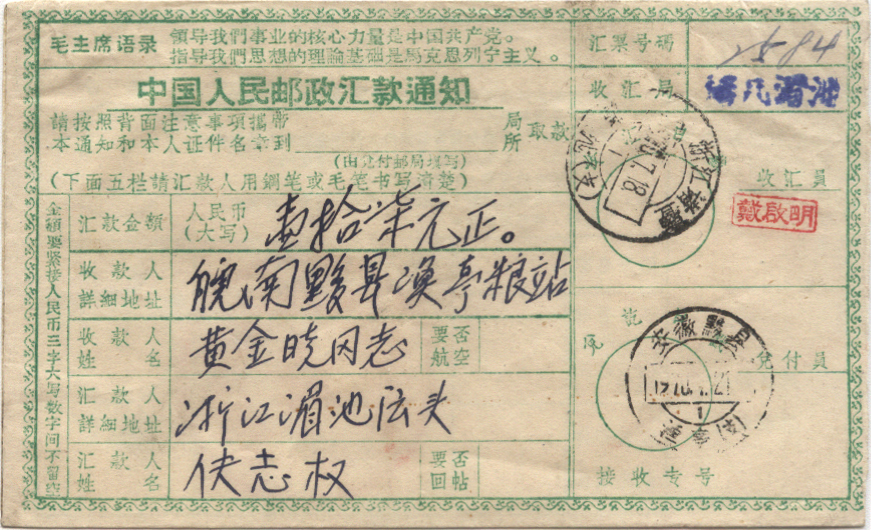 毛主席语录
领导我們事业的核心力量是中国共产党。
指导我們思想的理論基础是馬克思列宁主义。
中国人民邮政汇款通知
請按照背面注意事項攜带
本通知和本人证件名章到
局
所
取款
(由兑付邮局填写)
(下面五栏請汇款人用鋼笔或毛笔书写清楚)
金額要紧接人民币三字大写数字间不留空
汇款金額
人民币
(大写)
壹拾柒元正。
收款人
詳細地址
皖南黟县渔亭粮站
收款人
姓名
黄金晓同志
要否
航空
汇款人
詳細地址
浙江湄池店头
汇款人
姓名
志权
要否
回帖
汇票号碼
2584
收汇局
湄池
浙江诸暨
收汇員
戴啟明
号
兑付員
安徽黟县
1970.1.21
1
接收专号